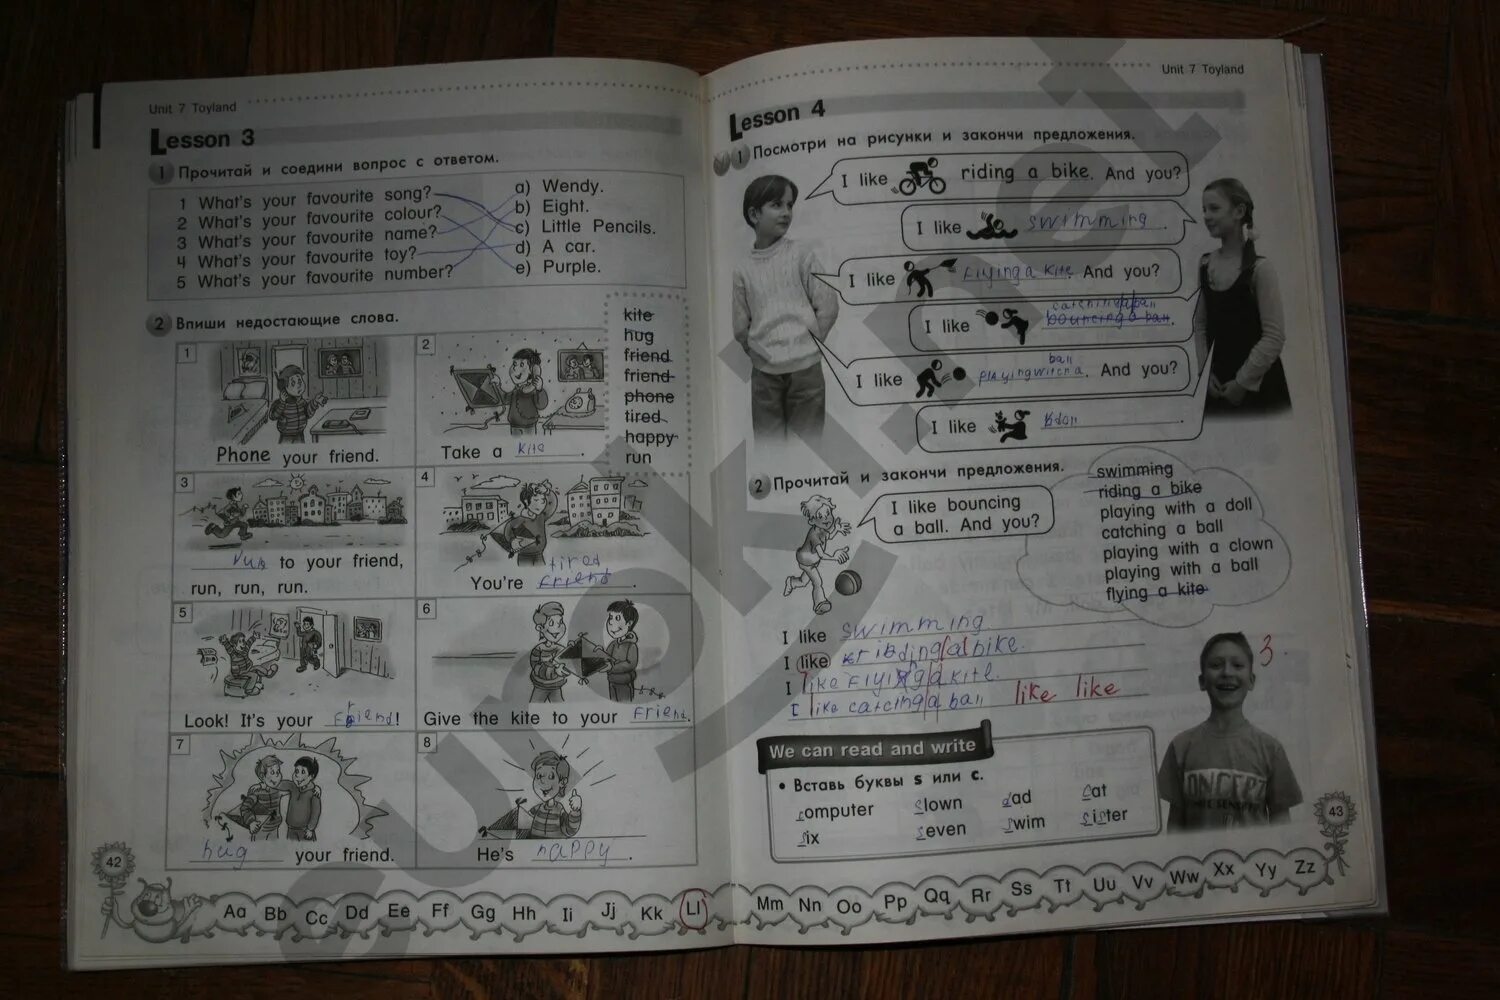 Unit 7 Toyland
Lesson 3
1 Прочитай и соедини вопрос с ответом.
1 What's your favourite song?
2 What's your favourite colour?
3 What's your favourite name?
4 What's your favourite toy?
5 What's your favourite number?
a) Wendy.
b) Eight.
c) Little Pencils.
d) A car.
e) Purple.
2 Впиши недостающие слова.
kite
hug
friend
friend
phone
tired
happy
run
1
Phone your friend.
2
Take a kite.
3
run to your friend,
run, run, run.
4
tired
You're friend.
5
Look! It's your friend!
6
Give the kite to your friend.
7
hug your friend.
8
He's happy.
42
Unit 7 Toyland
Lesson 4
1 Посмотри на рисунки и закончи предложения.
I like riding a bike. And you?
I like swimming.
I like flying a kite. And you?
catching a ball
I like bouncing a ball.
ball
I like playing with a. And you?
I like
2 Прочитай и закончи предложения.
I like bouncing
a ball. And you?
swimming
riding a bike
playing with a doll
catching a ball
playing with a clown
playing with a ball
flying a kite
I like swimming
I like riding a bike.
I like flying a kite.
I like catcing a ball like like
3.
We can read and write
• Вставь буквы s или c.
computer slown dad cat
six seven swim sister
43
Aa Bb Cc Dd Ee Ff Gg Hh Ii Jj Kk Ll Mm Nn Oo Pp Qq Rr Ss Tt Uu Vv Ww Xx Yy Zz